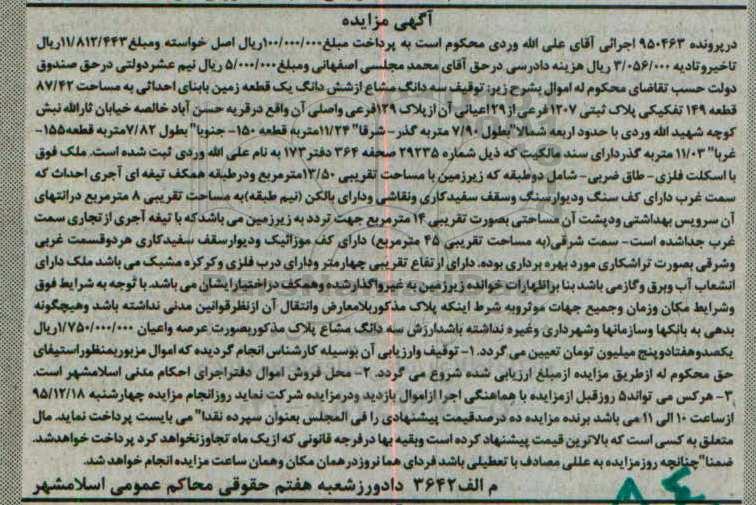 آگهی مزایده
درپرونده ۹۵۰۴۶۳ اجرائی آقای علی الله وردی محکوم است به پرداخت مبلغ۱۰۰/۰۰۰/۰۰۰ریال اصل خواسته ومبلغ۱۱/۸۱۲/۴۴۳ریال
تاخیروتادیه ۳/۰۵۶/۰۰۰ ریال هزینه دادرسی درحق آقای محمد مجلسی اصفهانی ومبلغ۵/۰۰۰/۰۰۰ ریال نیم عشردولتی درحق صندوق
دولت حسب تقاضای محکوم له اموال بشرح زیر: توقیف سه دانگ مشاع ازشش دانگ یک قطعه زمین بابنای احداثی به مساحت ۸۷/۴۲
قطعه ۱۴۹ تفکیکی پلاک ثبتی ۱۲۰۷ فرعی از۱۲۹اعیانی آن ازپلاک ۱۲۹فرعی واصلی آن واقع درقریه حسن آباد خالصه خیابان ثارالله نبش
کوچه شهید الله وردی با حدود اربعه شمالا"بطول ۷/۹۰ متربه گذر- شرقا" ۱۱/۲۴متربه قطعه ۱۵۰- جنوبا" بطول ۷/۸۲متربه قطعه۱۵۵-
غربا" ۱۱/۰۳ متربه گذردارای سند مالکیت که ذیل شماره ۲۹۲۳۵ صحفه ۳۶۴ دفتر۱۷۳ به نام علی الله وردی ثبت شده است. ملک فوق
با اسکلت فلزی- طاق ضربی- شامل دوطبقه که زیرزمین با مساحت تقریبی ۱۳/۵۰مترمربع ودرطبقه همکف تیغه ای آجری احداث که
سمت غرب دارای کف سنگ ودیوارسنگ وسقف سفیدکاری ونقاشی ودارای بالکن (نیم طبقه)به مساحت تقریبی ۸ مترمربع درانتهای
آن سرویس بهداشتی ودپشت آن مساحتی بصورت تقریبی ۱۴ مترمربع جهت تردد به زیرزمین می باشدکه با تیغه آجری ازتجاری سمت
غرب جداشده است- سمت شرقی(به مساحت تقریبی ۴۵ مترمربع) دارای کف موزائیک ودیوارسقف سفیدکاری هردوقسمت غربی
وشرقی بصورت تراشکاری مورد بهره برداری بوده. دارای ارتفاع تقریبی چهارمتر ودارای درب فلزی وکرکره مشبک می باشد ملک دارای
انشعاب آب وبرق وگازمی باشد بنا براظهارات خوانده زیرزمین به غیرواگذارشده وهمکف دراختیارایشان می باشد. با توجه به شرایط فوق
وشرایط مکان وزمان وجمیع جهات موثروبه شرط اینکه پلاک مذکوربلامعارض وانتقال آن ازنظرقوانین مدنی نداشته باشد وهیچگونه
بدهی به بانکها وسازمانها وشهرداری وغیره نداشته باشدارزش سه دانگ مشاع پلاک مذکوربصورت عرصه واعیان ۱/۷۵۰/۰۰۰/۰۰۰ریال
یکصدوهفتادوپنج میلیون تومان تعیین می گردد. ۱- توقیف وارزیابی آن بوسیله کارشناس انجام گردیده که اموال مزبوربمنظوراستیفای
حق محکوم له ازطریق مزایده ازمبلغ ارزیابی شده شروع می گردد. ۲- محل فروش اموال دفتراجرای احکام مدنی اسلامشهر است.
۳- هرکس می تواند۵ روزقبل ازمزایده با هماهنگی اجرا ازاموال بازدید ودرمزایده شرکت نماید روزانجام مزایده چهارشنبه ۹۵/۱۲/۱۸
ازساعت ۱۰ الی ۱۱ می باشد برنده مزایده ده درصدقیمت پیشنهادی را فی المجلس بعنوان سپرده نقد" می بایست پرداخت نماید. مال
متعلق به کسی است که بالاترین قیمت پیشنهاد کرده است وبقیه بها درفرجه قانونی که ازیک ماه تجاوزنخواهد کرد پرداخت خواهدشد.
ضمنا"چنانچه روزمزایده به عللی مصادف با تعطیلی باشد فردای همانروزدرهمان مکان وهمان ساعت مزایده انجام خواهد شد.
م الف۳۶۴۲ دادورزشعبه هفتم حقوقی محاکم عمومی اسلامشهر